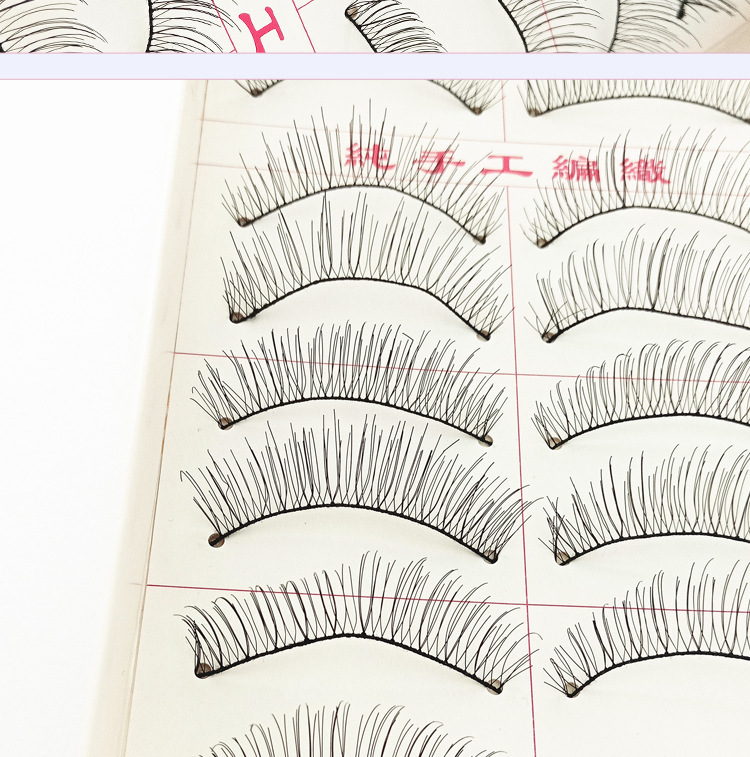 H
純手工編織